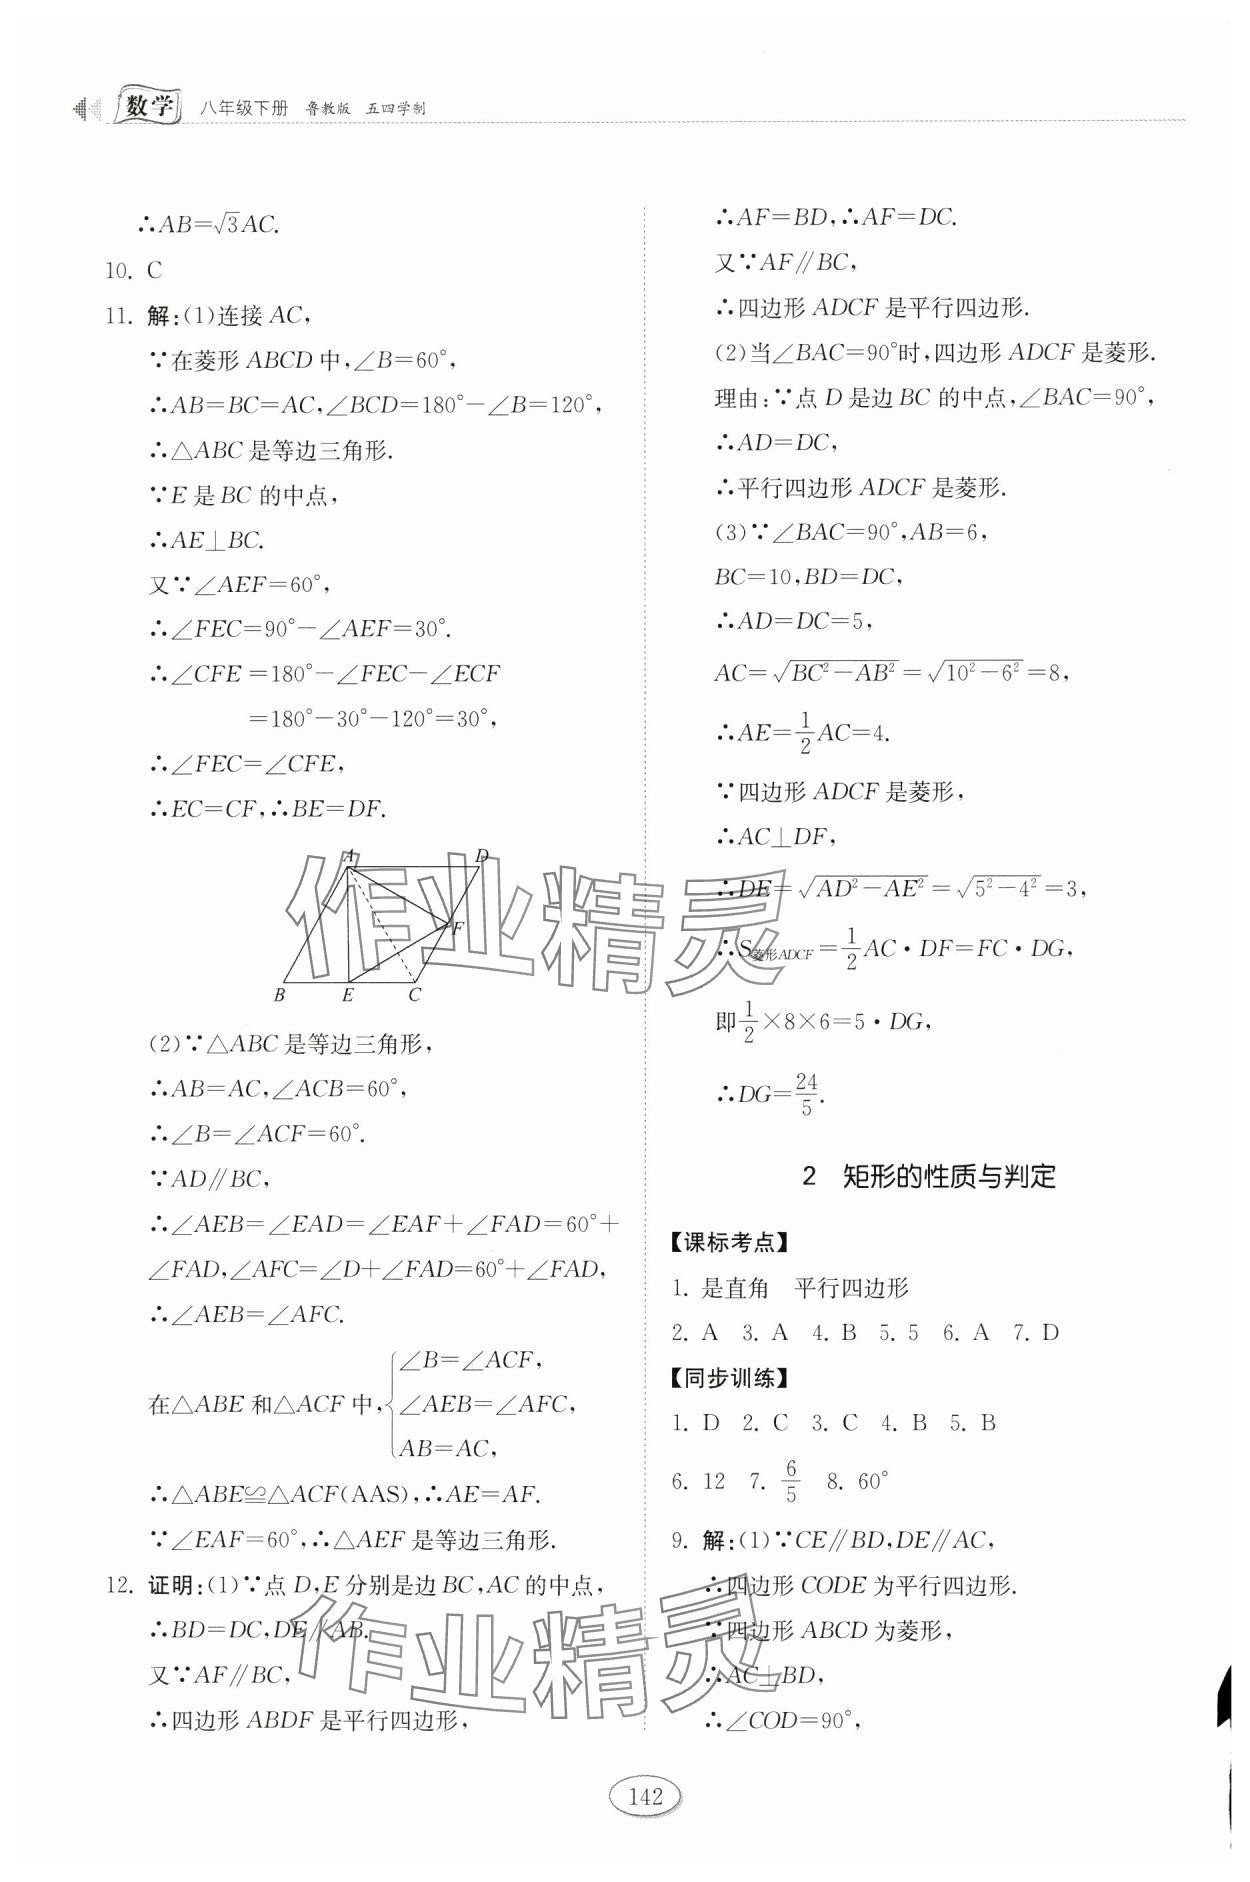 数学 八年级下册 鲁教版 五四学制
∴AB=√3AC.
10. C
11. 解:(1)连接 AC,
∵在菱形 ABCD 中,∠B=60°,
∴AB=BC=AC,∠BCD=180°−∠B=120°,
∴△ABC 是等边三角形.
∵E 是 BC 的中点,
∴AE⊥BC.
又∵∠AEF=60°,
∴∠FEC=90°−∠AEF=30°.
∴∠CFE=180°−∠FEC−∠ECF
=180°−30°−120°=30°,
∴∠FEC=∠CFE,
∴EC=CF,∴BE=DF.
A D
F
B E C
(2)∵△ABC 是等边三角形,
∴AB=AC,∠ACB=60°,
∴∠B=∠ACF=60°.
∵AD∥BC,
∴∠AEB=∠EAD=∠EAF+∠FAD=60°+
∠FAD,∠AFC=∠D+∠FAD=60°+∠FAD,
∴∠AEB=∠AFC.
在△ABE 和△ACF 中,{∠B=∠ACF,
∠AEB=∠AFC,
AB=AC,
∴△ABE≌△ACF(AAS),∴AE=AF.
∵∠EAF=60°,∴△AEF 是等边三角形.
12. 证明:(1)∵点 D,E 分别是边 BC,AC 的中点,
∴BD=DC,DE∥AB.
又∵AF∥BC,
∴四边形 ABDF 是平行四边形,
∴AF=BD,∴AF=DC.
又∵AF∥BC,
∴四边形 ADCF 是平行四边形.
(2)当∠BAC=90°时,四边形 ADCF 是菱形.
理由:∵点 D 是边 BC 的中点,∠BAC=90°,
∴AD=DC,
∴平行四边形 ADCF 是菱形.
(3)∵∠BAC=90°,AB=6,
BC=10,BD=DC,
∴AD=DC=5,
AC=√(BC²−AB²)=√(10²−6²)=8,
∴AE=1/2AC=4.
∵四边形 ADCF 是菱形,
∴AC⊥DF,
∴DE=√(AD²−AE²)=√(5²−4²)=3,
∴S菱形ADCF=1/2AC·DF=FC·DG,
即1/2×8×6=5·DG,
∴DG=24/5.
2 矩形的性质与判定
【课标考点】
1. 是直角 平行四边形
2. A 3. A 4. B 5. 5 6. A 7. D
【同步训练】
1. D 2. C 3. C 4. B 5. B
6. 12 7. 6/5 8. 60°
9. 解:(1)∵CE∥BD,DE∥AC,
∴四边形 CODE 为平行四边形.
∵四边形 ABCD 为菱形,
∴AC⊥BD,
∴∠COD=90°,
142
作业精灵
作业精灵